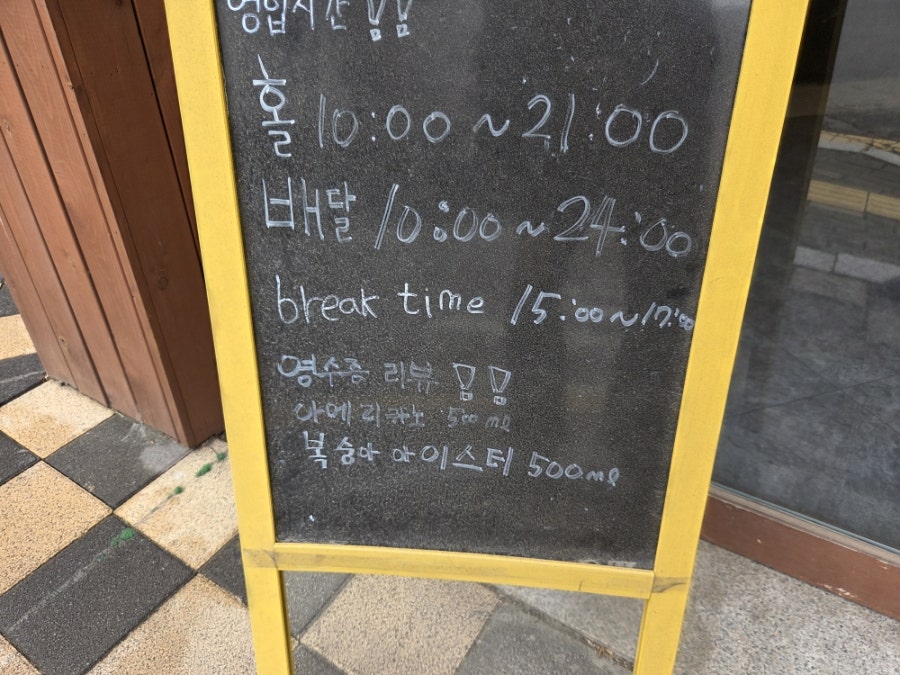 영업시간 !!
홀 10:00 ~ 21:00
배달 10:00 ~ 24:00
break time 15:00~17:00
영수증 리뷰 !!
아메리카노 500ml
복숭아 아이스티 500ml